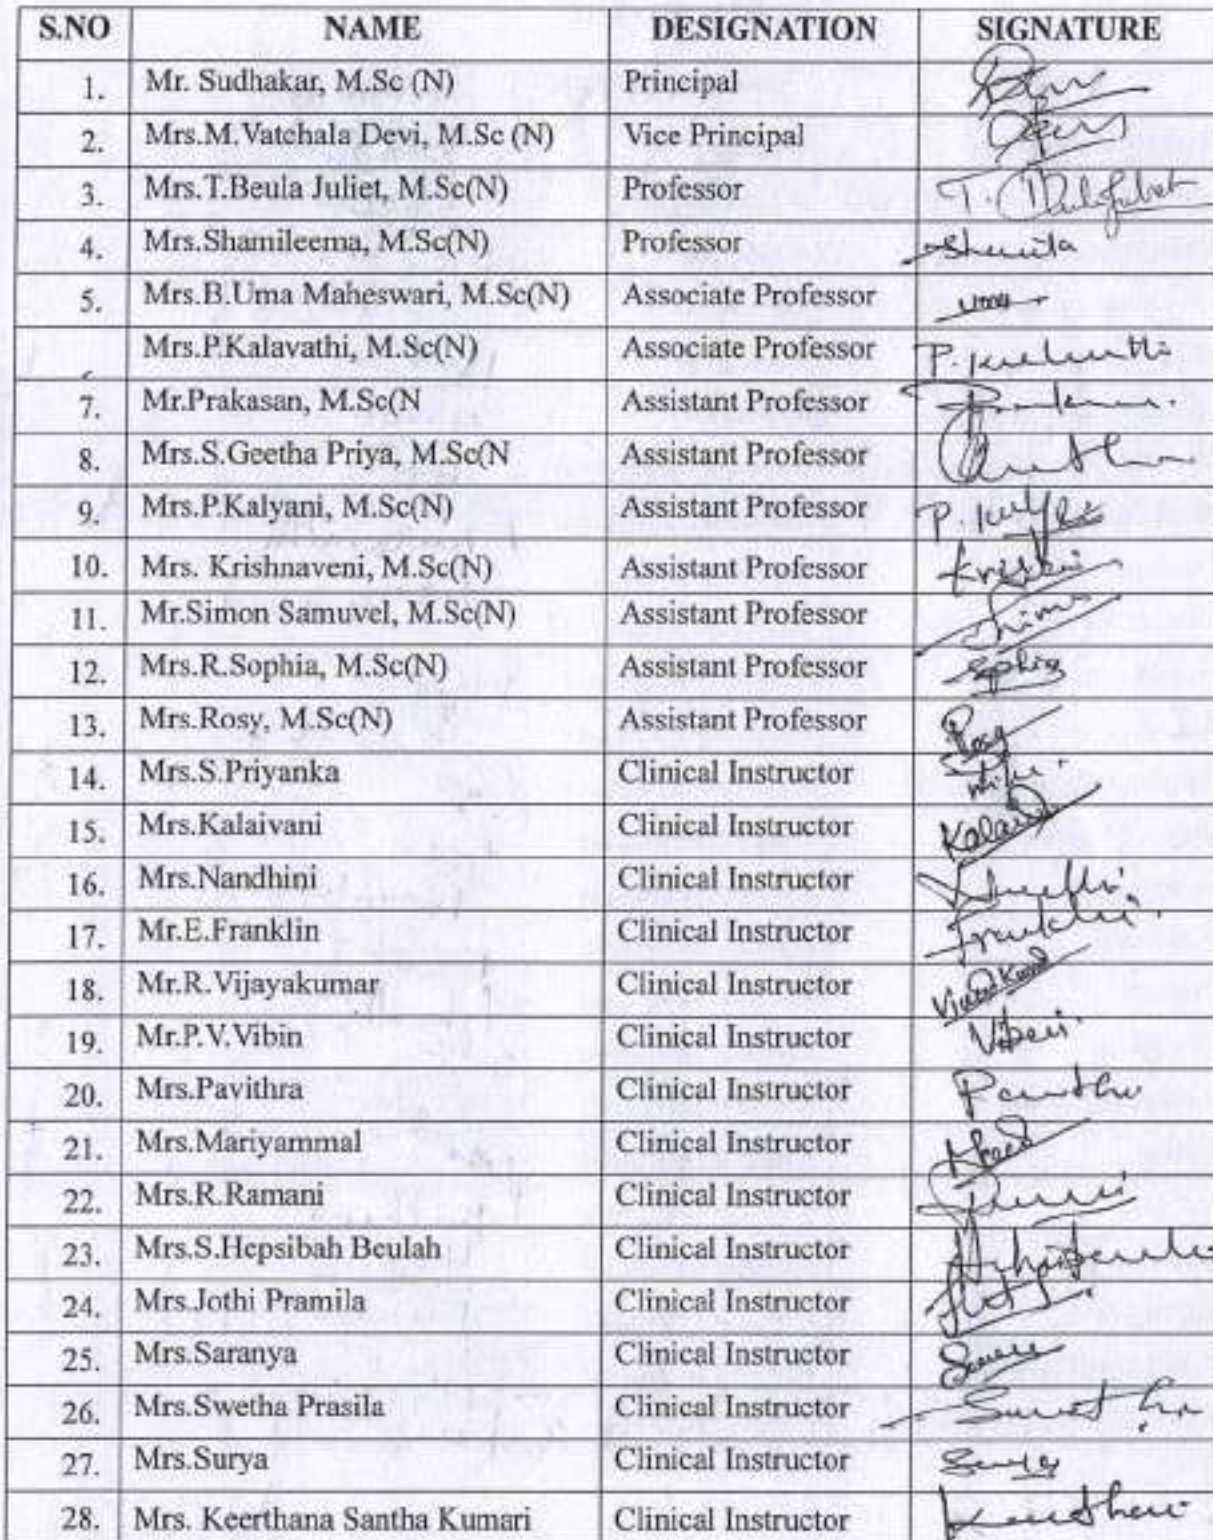 S.NO NAME DESIGNATION SIGNATURE
1. Mr. Sudhakar, M.Sc (N) Principal
2. Mrs.M.Vatchala Devi, M.Sc (N) Vice Principal
3. Mrs.T.Beula Juliet, M.Sc(N) Professor T.
4. Mrs.Shamileema, M.Sc(N) Professor
5. Mrs.B.Uma Maheswari, M.Sc(N) Associate Professor
Mrs.P.Kalavathi, M.Sc(N) Associate Professor P.
7. Mr.Prakasan, M.Sc(N Assistant Professor
8. Mrs.S.Geetha Priya, M.Sc(N Assistant Professor
9. Mrs.P.Kalyani, M.Sc(N) Assistant Professor P.
10. Mrs. Krishnaveni, M.Sc(N) Assistant Professor
11. Mr.Simon Samuvel, M.Sc(N) Assistant Professor
12. Mrs.R.Sophia, M.Sc(N) Assistant Professor Sophia
13. Mrs.Rosy, M.Sc(N) Assistant Professor Rosy
14. Mrs.S.Priyanka Clinical Instructor
15. Mrs.Kalaivani Clinical Instructor
16. Mrs.Nandhini Clinical Instructor
17. Mr.E.Franklin Clinical Instructor
18. Mr.R.Vijayakumar Clinical Instructor
19. Mr.P.V.Vibin Clinical Instructor
20. Mrs.Pavithra Clinical Instructor
21. Mrs.Mariyammal Clinical Instructor
22. Mrs.R.Ramani Clinical Instructor
23. Mrs.S.Hepsibah Beulah Clinical Instructor
24. Mrs.Jothi Pramila Clinical Instructor
25. Mrs.Saranya Clinical Instructor
26. Mrs.Swetha Prasila Clinical Instructor
27. Mrs.Surya Clinical Instructor
28. Mrs. Keerthana Santha Kumari Clinical Instructor